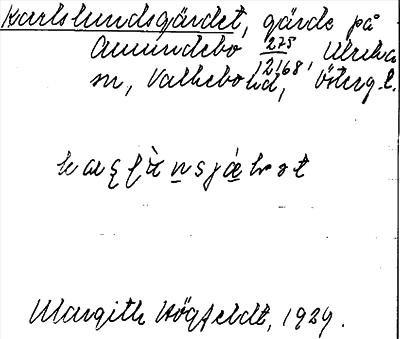 Karlslundsgärdet, gärde på
Amundebo 275/2168, Ulrika
sn, Valkebo hd, Österg. l.
Margith Högfeldt, 1929.